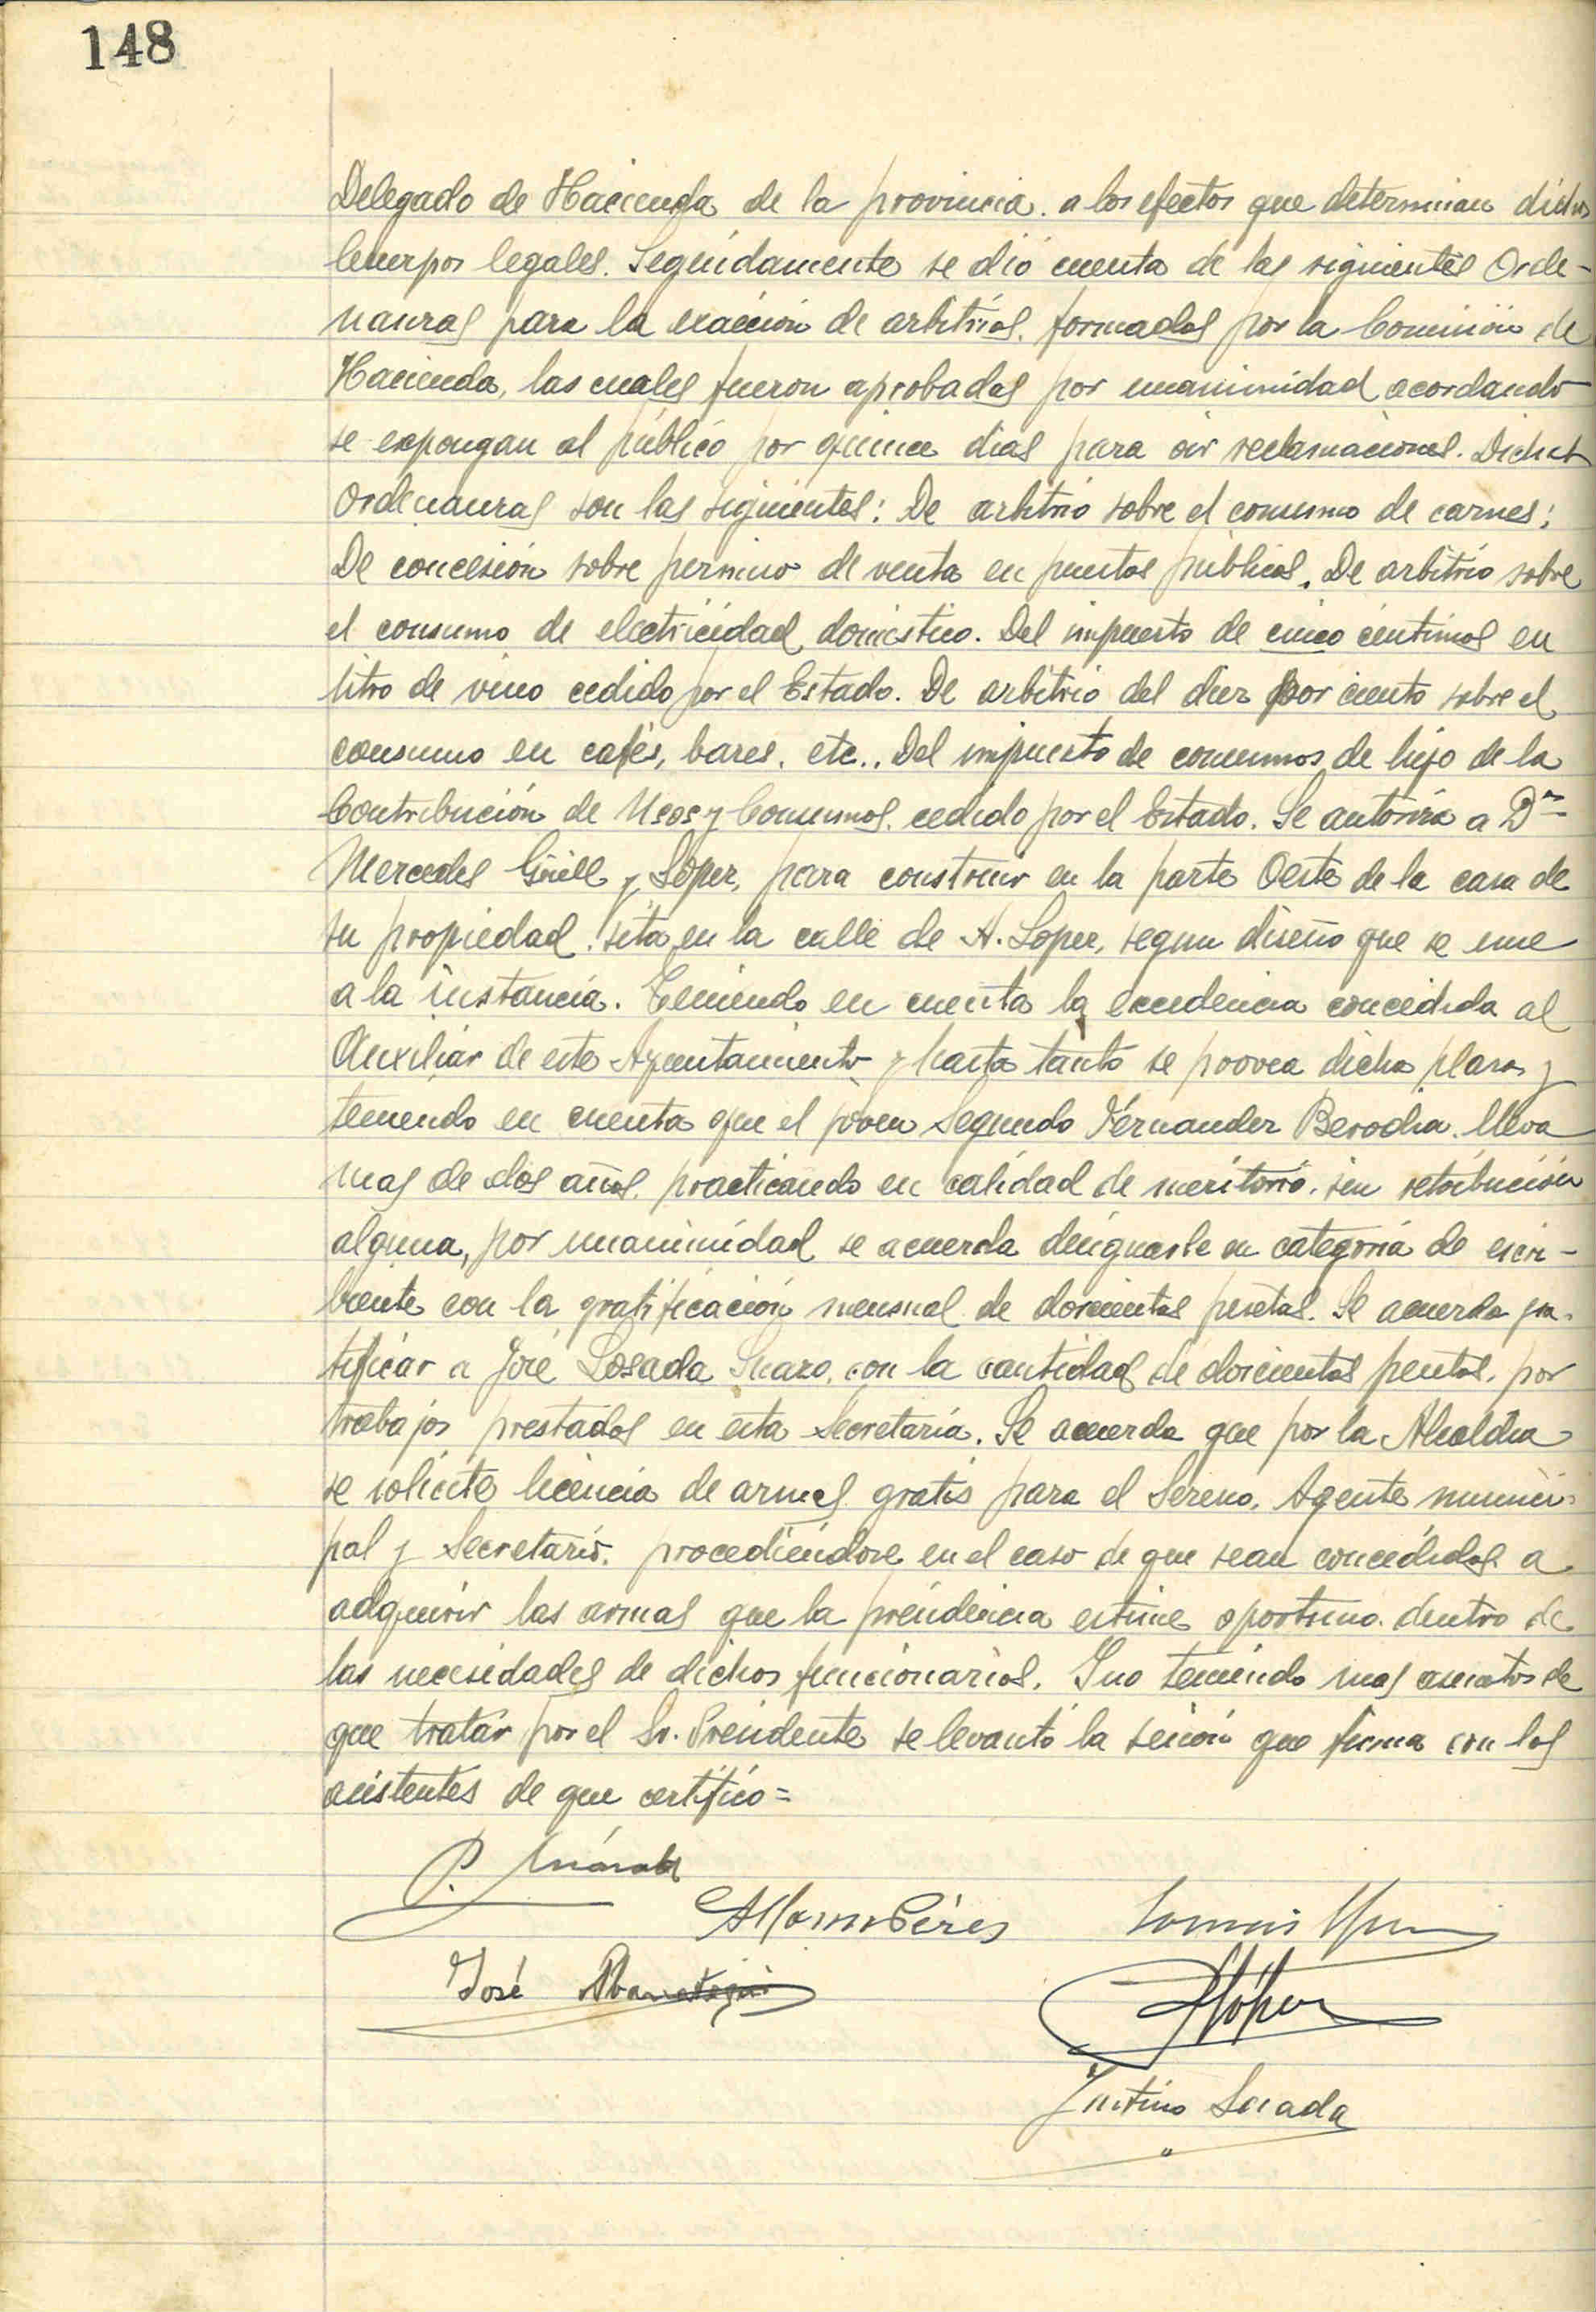 148
Delegado de Hacienda de la provincia. a los efectos que determinan dichos
Cuerpos legales. Seguidamente se dió cuenta de las siguientes Orde-
nanzas para la exacción de arbitrios, formadas por la Comisión de
Hacienda, las cuales fueron aprobadas por unanimidad acordando
se expongan al público por quince dias para oir reclamaciones. Dichas
Ordenanzas son las siguientes: De arbitrio sobre el consumo de carnes;
De concesión sobre permiso de venta en puestos públicos. De arbitrio sobre
el consumo de electricidad doméstico. Del impuesto de cinco centimos en
litro de vino cedido por el Estado. De arbitrio del diez por ciento sobre el
consumo en cafés, bares, etc.. Del impuesto de consumos de lujo de la
Contribución de Usos y Consumos, cedido por el Estado. Se autoriza a Dña
Mercedes Güell y López, para construir en la parte Oeste de la casa de
su propiedad, sita en la calle de A. Lopez, segun diseño que se une
a la instancia. Teniendo en cuenta la excedencia concedida al
Auxiliar de este Ayuntamiento y hasta tanto se provea dicha plaza y
teniendo en cuenta que el joven Segundo Fernandez Berodia, lleva
mas de dos años, practicando en calidad de meritorio, sin retribución
alguna, por unanimidad se acuerda designarle en categoria de escri-
biente con la gratificación mensual de doscientas pesetas. Se acuerda gra-
tificar a José Losada Suazo, con la cantidad de doscientas pesetas, por
trabajos prestados en esta Secretaría. Se acuerda que por la Alcaldia
se solicite licencia de armas gratis para el Sereno, Agente munici-
pal y Secretario, procediéndose en el caso de que sean concedidas a
adquirir las armas que la presidencia estime oportuno, dentro de
las necesidades de dichos funcionarios. Y no teniendo mas asuntos de
que tratar por el Sr. Presidente se levantó la sesión que firma con los
asistentes de que certifico=
P.
José
López
Justino Losada